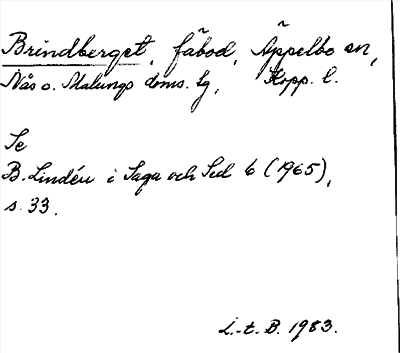 Brindberget, fäbod, Äppelbo sn,
Nås o. Malungs doms. lg, Kopp. l.
Se
B. Lindén i Saga och Sed 6 (1965),
s. 33.
L.-t. B. 1983.